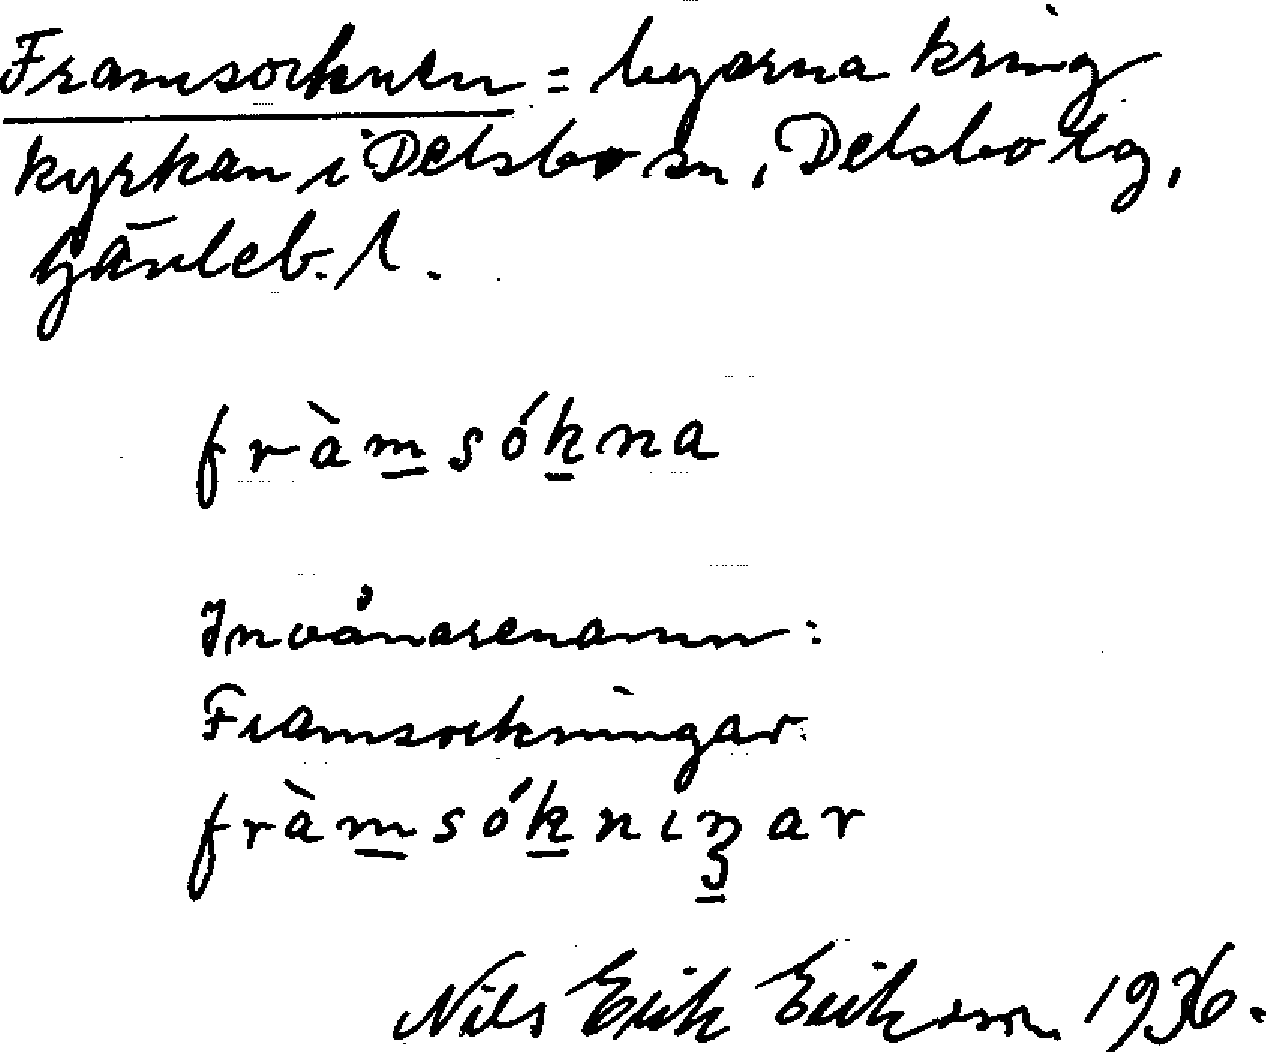 Framsocknen = byarna kring
kyrkan i Delsbo sn, Delsbo tg,
Gävleb. l.
fràm̲sók̲na
Invånarenamn:
Framsockningar
fràm̲sók̲niŋ̲ar
Nils Erik Erikson 1936.